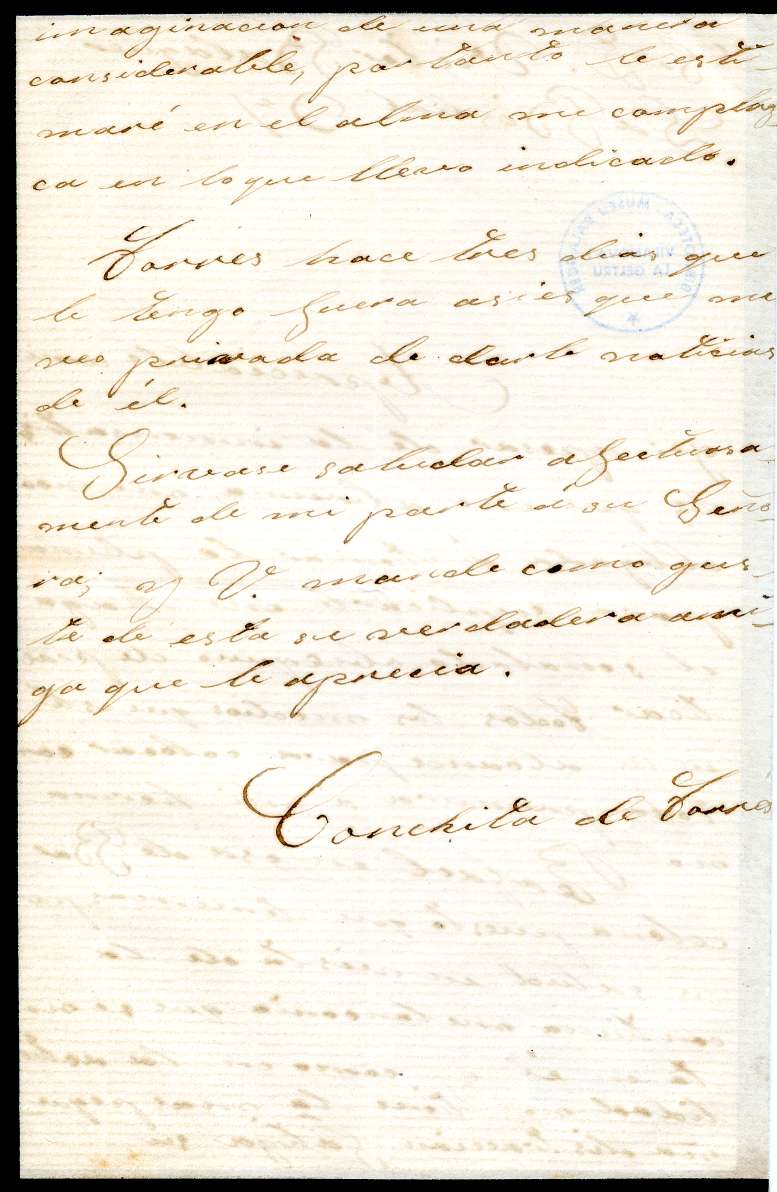 imaginacion de una manera
considerable, por tanto le esti-
maré en el alma me complaz
ca en lo que llevo indicado.
Torres hace tres dias que
le tengo fuera asi es que me
veo privada de darle noticias
de él.
Sirvase saludar afectuosa-
mente de mi parte á su Seño-
ra; y V. mande como gus-
te de esta su verdadera ami-
ga que le aprecia.
Conchita de Torres